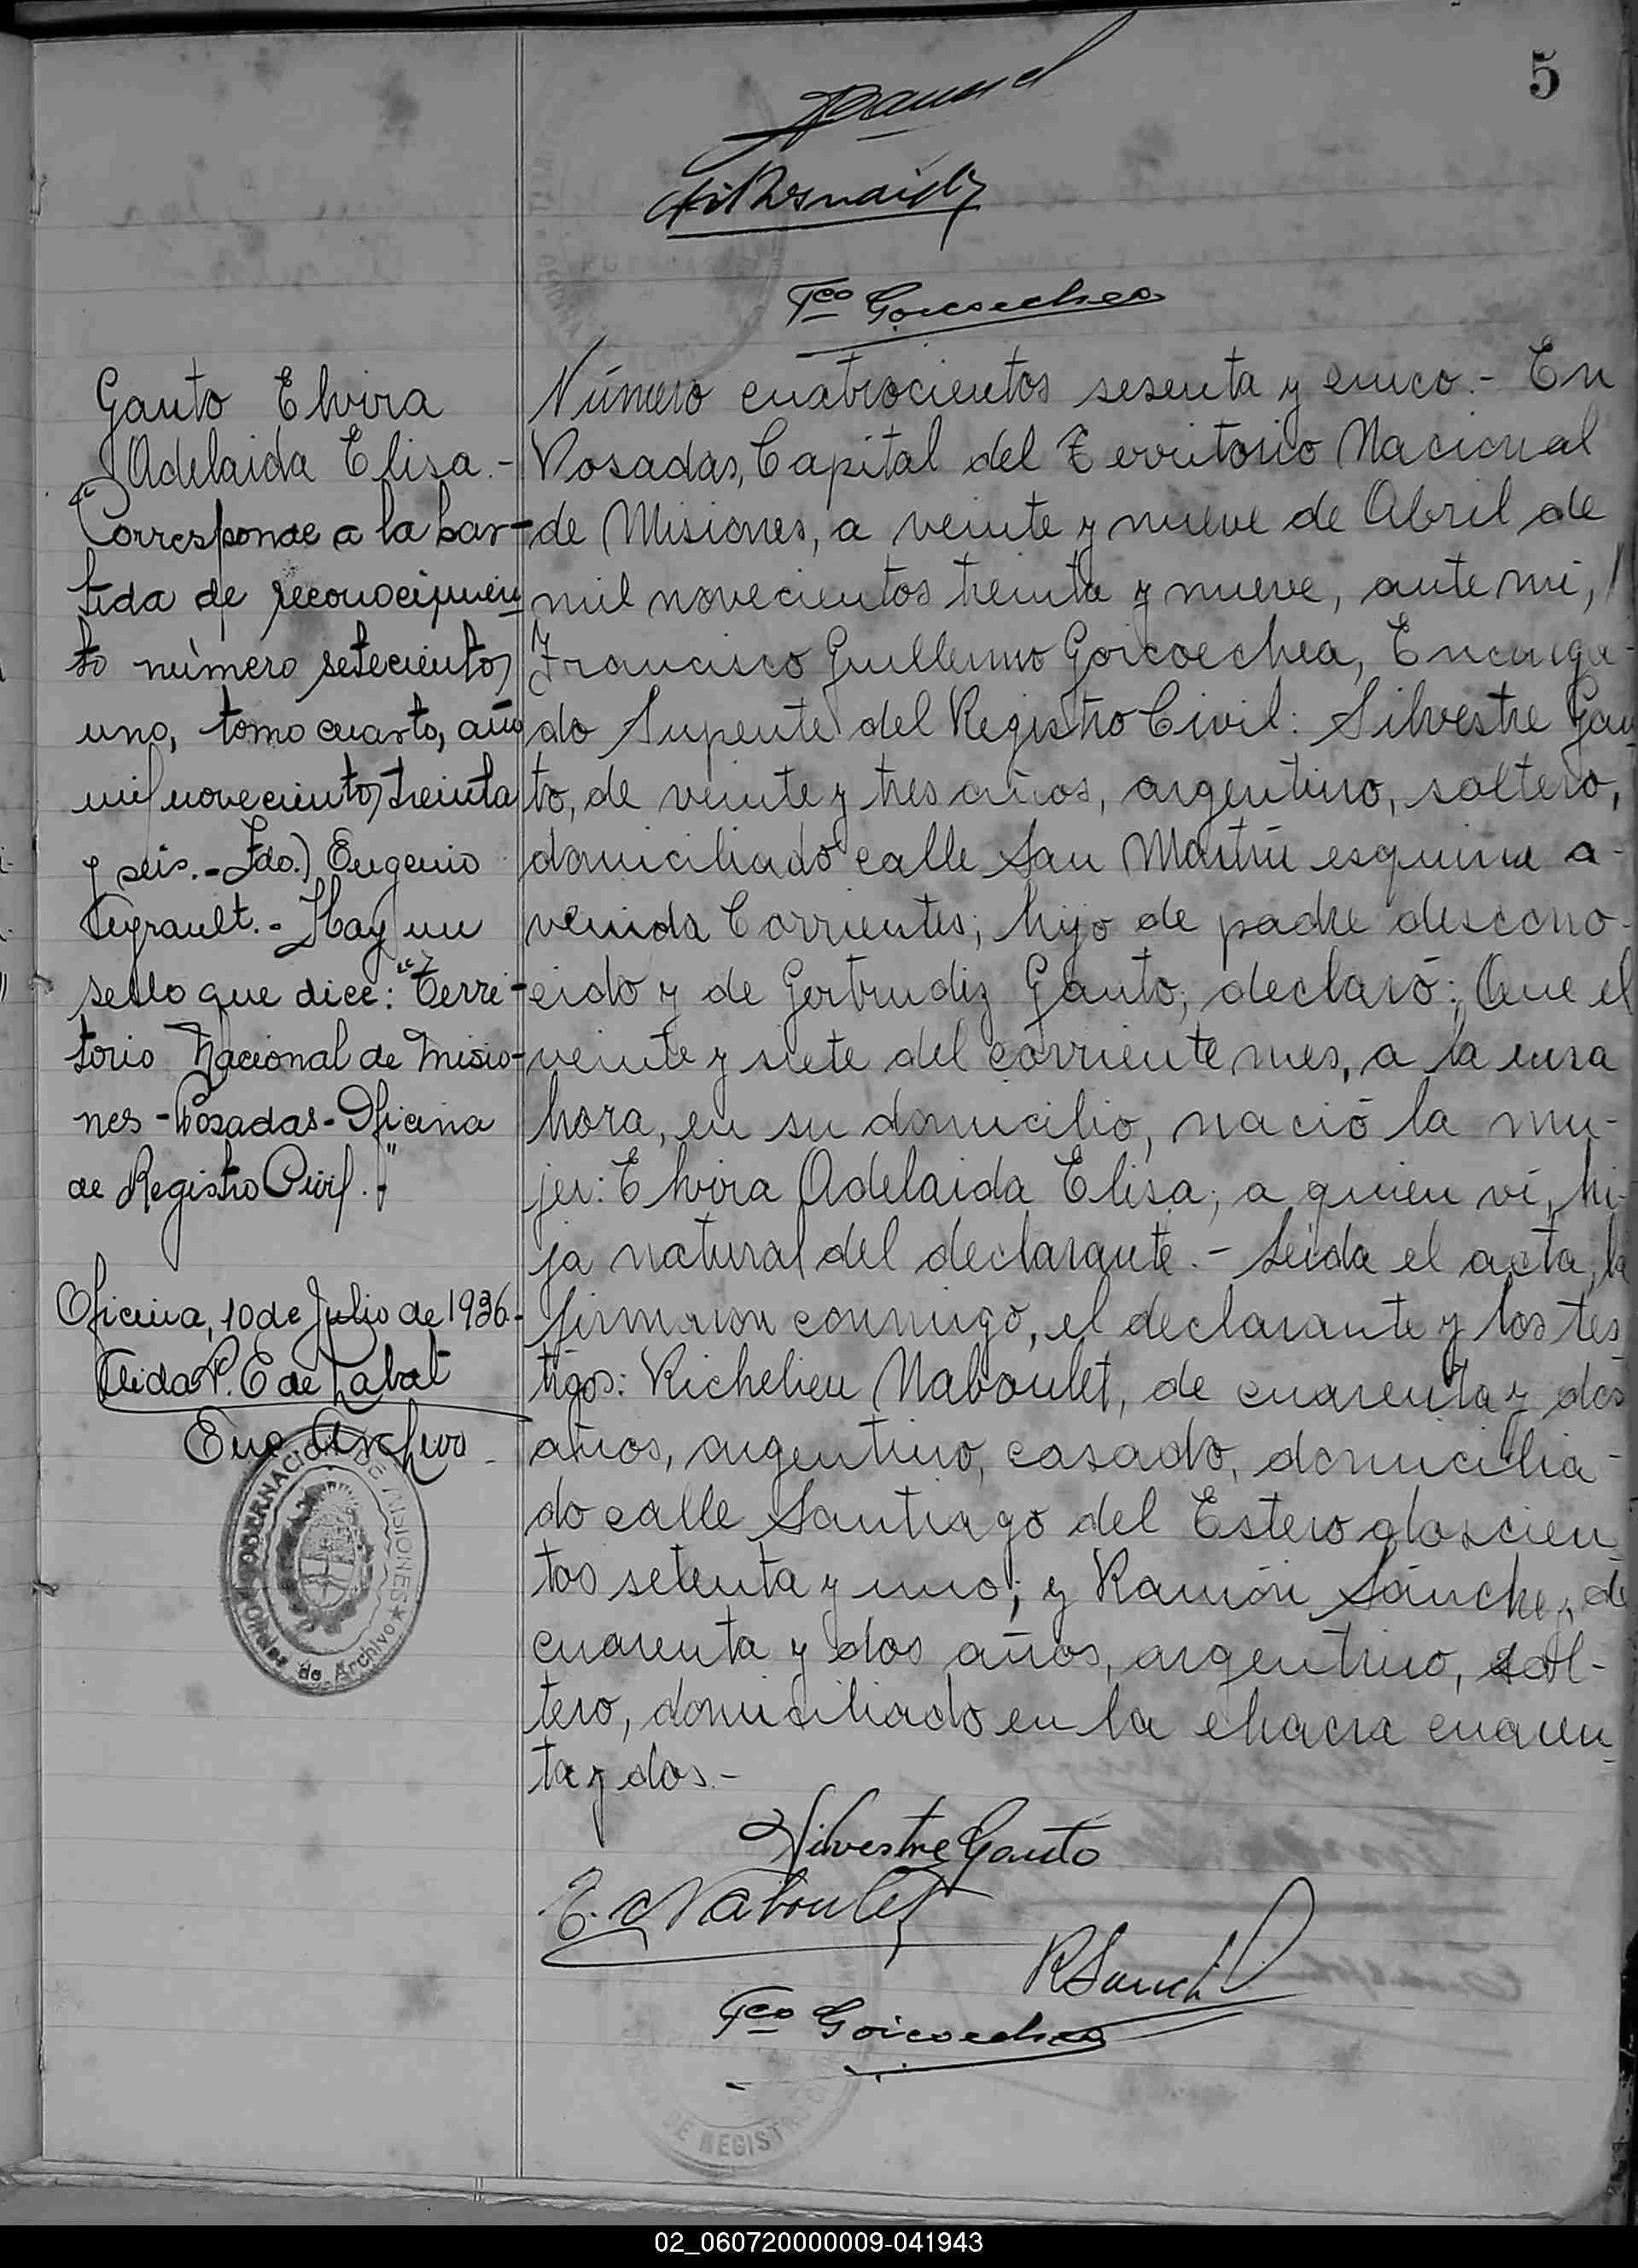 5
Fco Goicoechea
Gauto Elvira
Adelaida Elisa.-
"Corresponde a la par-
tida de reconocimien
to número setecientos
uno, tomo cuarto, año
mil novecientos treinta
y seis.- Fdo.) Eugenio
.- Hay un
sello que dice: "Terri-
torio Nacional de Misio-
nes - Posadas - Oficina
de Registro Civil.-"
Oficina, 10 de Julio de 1936.-
P. E de Labat
Enc. Archivo
GOBERNACION DE MISIONES
Oficina de Archivo
Número cuatrocientos sesenta y cinco.- En
Posadas, Capital del Territorio Nacional
de Misiones, a veinte y nueve de Abril de
mil novecientos treinta y nueve, ante mi,
Francisco Guillermo Goicoechea, Encarga-
do Supente del Registro Civil: Silvestre Gau
to, de veinte y tres años, argentino, soltero,
domiciliado calle San Martín esquina a-
venida Corrientes; hijo de padre descono-
cido y de Gertrudiz Gauto; declaró: Que el
veinte y siete del corriente mes, a la una
hora, en su domicilio, nació la mu-
jer: Elvira Adelaida Elisa; a quien ví, hi-
ja natural del declarante.- Leída el acta, la
firmaron conmigo, el declarante y los tes
tigos: Richelieu Naboulet, de cuarenta y dos
años, argentino, casado, domicilia-
do calle Santiago del Estero doscien
tos setenta y uno; y Ramón Sánchez, de
cuarenta y dos años, argentino, sol-
tero, domiciliado en la chacra cuaren
ta y dos.-
Silvestre Gauto
Naboulet
R Sanch
Fco Goicoechea
DE REGISTRO
02_060720000009-041943